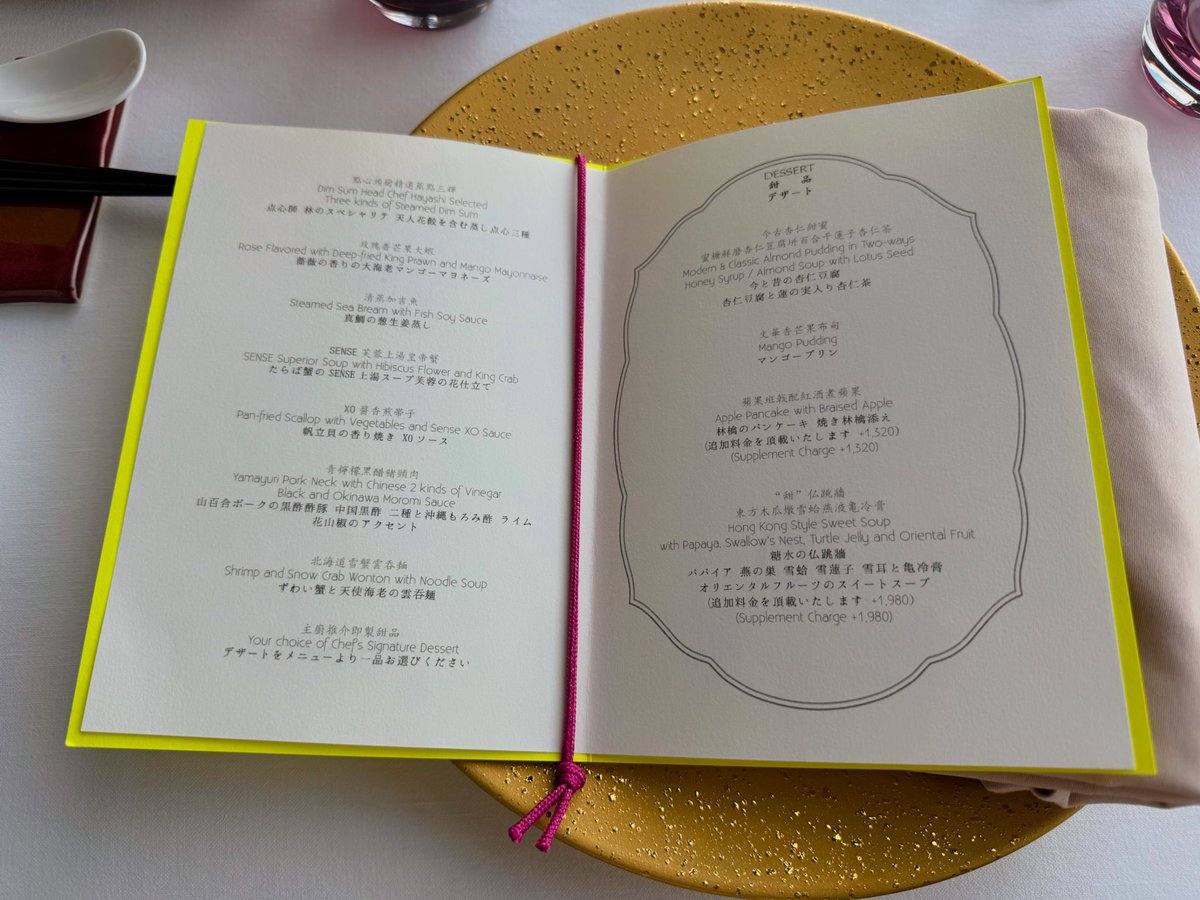 點心頭廚精選蒸點三輝
Dim Sum Head Chef Hayashi Selected
Three kinds of Steamed Dim Sum
点心師 林のスペシャリテ 天人花餃を含む蒸し点心三種
玫瑰香芒果大蝦
Rose Flavored with Deep-fried King Prawn and Mango Mayonnaise
薔薇の香りの大海老マンゴーマヨネーズ
清蒸加吉魚
Steamed Sea Bream with Fish Soy Sauce
真鯛の葱生姜蒸し
SENSE 芙蓉上湯皇帝蟹
SENSE Superior Soup with Hibiscus Flower and King Crab
たらば蟹の SENSE 上湯スープ芙蓉の花仕立て
XO 醬香煎帶子
Pan-fried Scallop with Vegetables and Sense XO Sauce
帆立貝の香り焼き XO ソース
青檸檬黑醋豬頸肉
Yamayuri Pork Neck with Chinese 2 kinds of Vinegar
Black and Okinawa Moromi Sauce
山百合ポークの黒酢酢豚 中国黒酢 二種と沖縄もろみ酢 ライム
花山椒のアクセント
北海道雪蟹雲吞麵
Shrimp and Snow Crab Wonton with Noodle Soup
ずわい蟹と天使海老の雲呑麺
主廚推介即製甜品
Your choice of Chef's Signature Dessert
デザートをメニューより一品お選びください
DESSERT
甜 品
デザート
今古杏仁甜蜜
蜜糖鮮磨杏仁豆腐拼百合干蓮子杏仁茶
Modern & Classic Almond Pudding in Two-ways
Honey Syrup / Almond Soup with Lotus Seed
今と昔の杏仁豆腐
杏仁豆腐と蓮の実入り杏仁茶
文華香芒果布甸
Mango Pudding
マンゴープリン
蘋果班戟配紅酒煮蘋果
Apple Pancake with Braised Apple
林檎のパンケーキ 焼き林檎添え
(追加料金を頂戴いたします +1,320)
(Supplement Charge +1,320)
“甜”仏跳牆
東方木瓜燉雪蛤燕液亀冷膏
Hong Kong Style Sweet Soup
with Papaya, Swallow's Nest, Turtle Jelly and Oriental Fruit
糖水の仏跳牆
パパイア 燕の巣 雪蛤 雪蓮子 雪耳と亀冷膏
オリエンタルフルーツのスイートスープ
(追加料金を頂戴いたします +1,980)
(Supplement Charge +1,980)